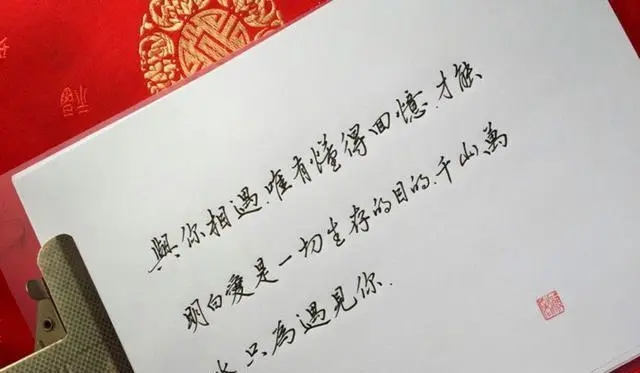 與你相遇.唯有懂得回憶.才能
明白愛是一切生存的目的.千山萬
水只為遇見你.